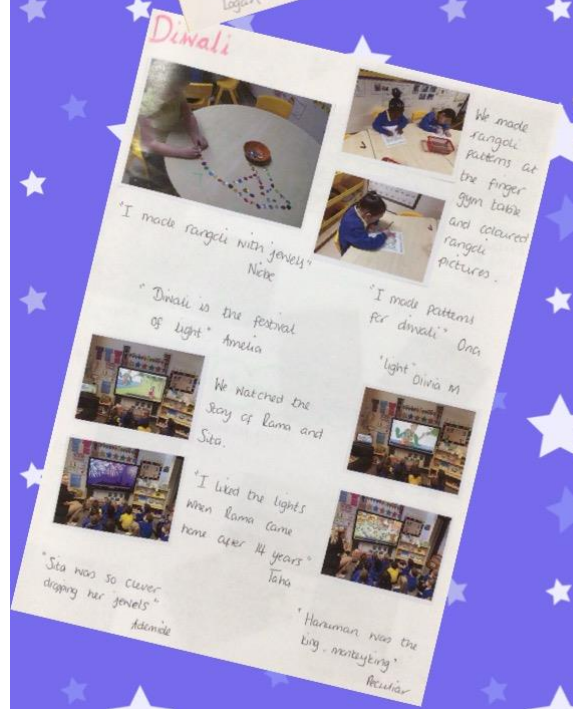 Logan
Diwali
We made
rangoli
patterns at
the finger
gym table
and coloured
rangoli
pictures.
"I made rangoli with jewels"
"I made patterns
for diwali"
"Diwali is the festival
of light" Amelia
"light" Olivia M
We watched the
Story of Rama and
Sita.
"I liked the lights
when Rama came
home after 14 years"
Taha
"Sita was so clever
dropping her jewels"
"Hanuman was the
king, monkey king"
Peculiar